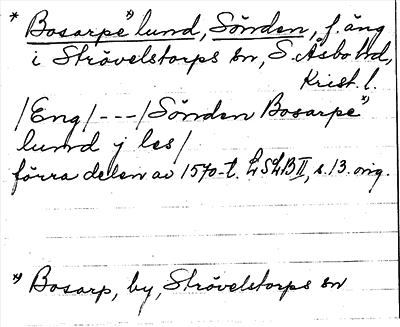 * Bosarpe*) lund, Sönden, f. äng
i Strövelstorps sn, S. Åsbo hd,
Krist. l.
/Eng/---/Sönden Bosarpe*)
lund j les/
förra delen av 1570-t. LSLB II, s. 13. orig.
*) Bosarp, by, Strövelstorps sn